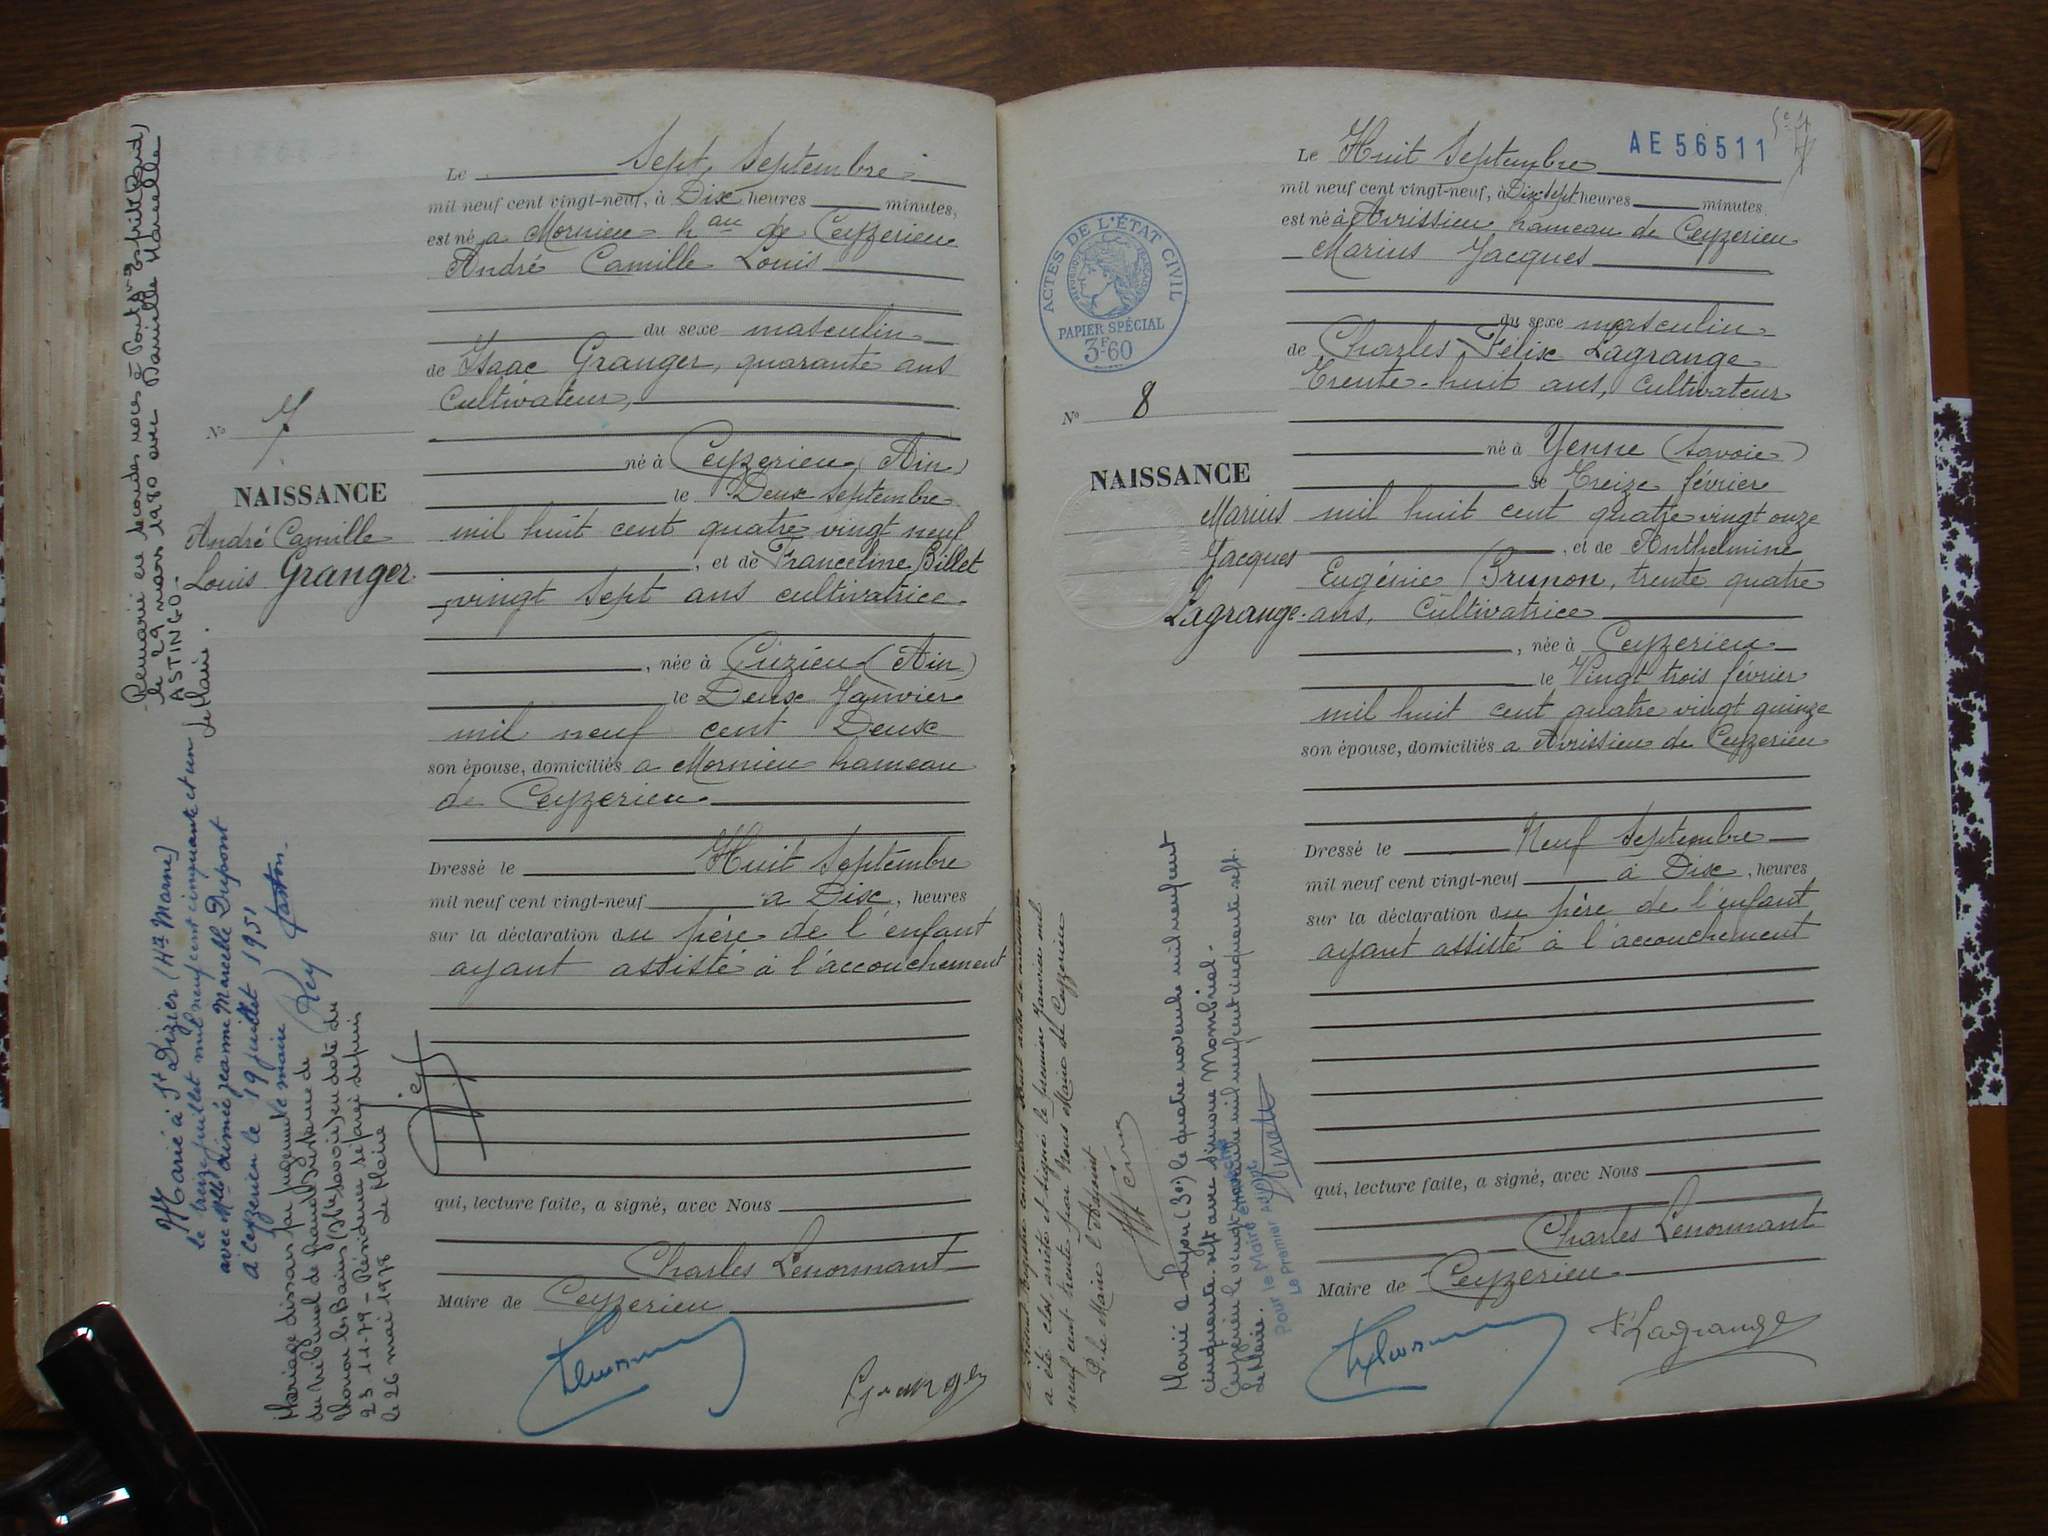 Le Sept Septembre
mil neuf cent vingt-neuf, à Dix heures minutes,
est né a Mornieu hau de Ceyzerieu
André Camille Louis
du sexe masculin
de Isaac Granger, quarante ans
Cultivateur,
né à Ceyzerieu (Ain)
le Deux Septembre
mil huit cent quatre vingt neuf
, et de Franceline Billet
vingt sept ans cultivatrice
, née à Cuzieu (Ain)
le Deux Janvier
mil neuf cent Deux
son épouse, domiciliés a Mornieu hameau
de Ceyzerieu
Dressé le Huit Septembre
mil neuf cent vingt-neuf a Dix, heures
sur la déclaration du père de l'enfant
ayant assisté à l'accouchement
qui, lecture faite, a signé, avec Nous
Charles Lenormant
Maire de Ceyzerieu
Granger
No 7
NAISSANCE
André Camille
Louis Granger.
Remarié en secondes noces à
le 29 mars 1980 avec Danielle Marcelle
ASTINGO.
Le Maire.
Marié à St Dizier (Hte Marne)
le treize juillet mil neuf cent cinquante et un
avec Mlle Jeanne Marcelle Dupont
à Ceyzerieu le 19 juillet 1951
Le maire
Mariage dissous par jugement
du tribunal de grande instance de
Thonon les Bains (Hte Savoie) en date du
23-11-79 - Résidence séparée depuis
le 26 mai 1978 Le Maire
Le présent registre contenant
a été clos arrêté et signé le premier Janvier mil
neuf cent trente par Nous Maire de Ceyzerieu
P. le Maire l'Adjoint
AE 56511
ACTES DE L'ÉTAT CIVIL
PAPIER SPÉCIAL
3F60
Le Huit Septembre
mil neuf cent vingt-neuf, à Dix sept heures minutes
est né à Avrissieu hameau de Ceyzerieu
Marius Jacques
du sexe masculin
de Charles Félix Lagrange
Trente-huit ans, Cultivateur
né à Yenne (Savoie)
le Treize février
mil huit cent quatre vingt onze
, et de Anthelmine
Eugénie Brunon, trente quatre
ans, Cultivatrice
, née à Ceyzerieu
le Vingt trois février
mil huit cent quatre vingt quinze
son épouse, domiciliés a Avrissieu de Ceyzerieu
Dressé le Neuf Septembre
mil neuf cent vingt-neuf à Dix, heures
sur la déclaration du père de l'enfant
ayant assisté à l'accouchement
qui, lecture faite, a signé, avec Nous
Charles Lenormant
Maire de Ceyzerieu
F Lagrange
No 8
NAISSANCE
Marius
Jacques
Lagrange.
Marié à Lyon (3e) le quatre novembre mil neuf cent
cinquante-sept avec Simone Mombriel.
Ceyzerieu le vingt novembre mil neuf cent cinquante sept.
Le Maire.
Pour le Maire empêché
Le Premier Adjoint